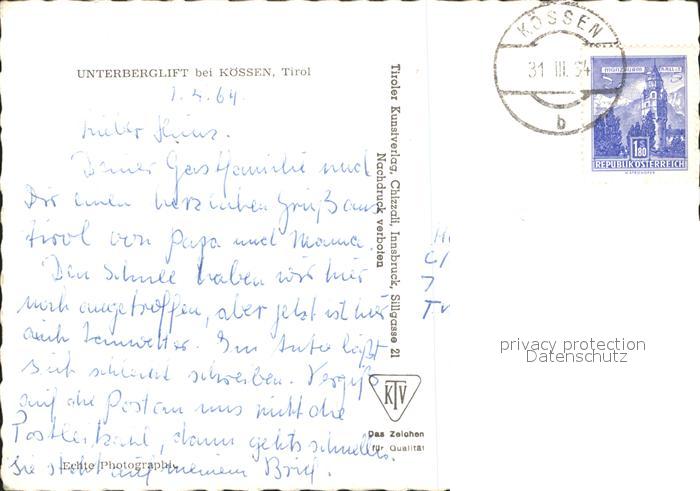 UNTERBERGLIFT bei KÖSSEN, Tirol
1.4.64
Lieber Heinz.
Deiner Gastfamilie und
Dir einen herzlichen Gruß aus
Tirol von Papa und Mama.
Den Schnee haben wir hier
noch angetroffen, aber jetzt ist hier
auch Tauwetter. Im Auto läßt
sich schlecht schreiben. Vergiß
auf die Post an uns nicht die
Postleitzahl, dann geht's schneller.
Sie steht auf meinem Brief.
Echte Photographie
Tiroler Kunstverlag, Chizzali, Innsbruck, Sillgasse 21
Nachdruck verboten
KTV
Das Zeichen
für Qualität
KÖSSEN
31 III. 64
b
1.80
REPUBLIK ÖSTERREICH
privacy protection
Datenschutz